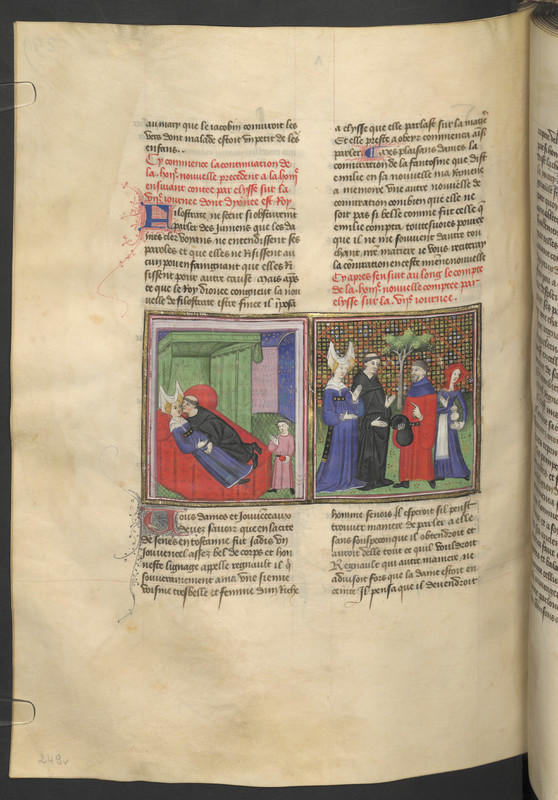 au mary que le iacobin coniuroit les
vers dont malade estoit vn petit de ses
enfans .
Cy commence la continuation de
la nouvelle precedent a la
ensuiuant contee par elysse sur la
vij.e iournee dont dyonee est Roy
ilostrate ne sceut si obscurem̄t
parler des iumens que les da
mes cler voyans ne entendissent ses
paroles et que elles ne Rissent au
cun pou en faignant que elles Ri
sissent pour autre cause Mais aps̄
ce que le Roy dionee congneut la nou
uelle de filostrate estre finee il iposa
a elysse que elle parlast sur la matie
Et elle preste a obeyr commenca aīsi
parler Tres plaisans dames la
coniuration de la fantosme que dist
emilie en sa nouuelle ma Ramene
a memoire vne autre nouuelle de
coniuration combien que elle ne
soit pas si belle comme fut celle q̄
emilie compta touteffois pource
que il ne me souuient dautre tou
chant nrē matiere ie vous Reciteray
la coniuration en ceste miēne nouuelle
Cy apres sensuit au long le compte
de la nouuelle comptee par
elysse sur la vij.e iournee .
Tous dames et Iouuenceaux
deuez sauoir que en la cite
de senes en tosane fut Jadis vn
Jouuencel assez bel de corps et hon
neste lignage appelle regnault il q̄
souuerainement ama vne sienne
voisine tresbelle et femme dun Riche
homme senois Il esperoit sil peust
trouuer maniere de parler a elle
sans souspecon que il obtendroit et
auroit delle tout ce quil vouldroit
Regnault qui autre maniere ne
aduisoit fors que la dame estoit en
ceinte Il pensa que il deuendroit
249v